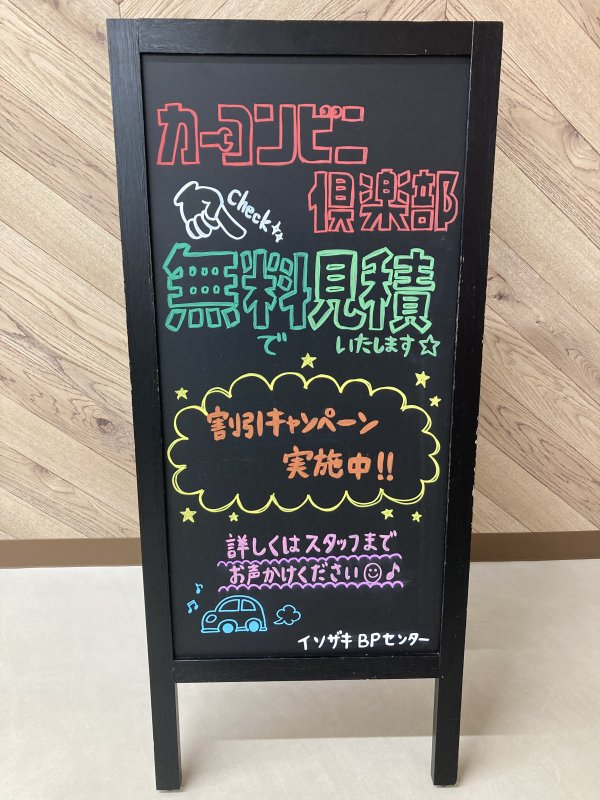 カーコンビニ
倶楽部
Check
無料見積
で いたします☆
割引キャンペーン
実施中!!
詳しくはスタッフまで
お声かけください☺♪
イソザキBPセンター